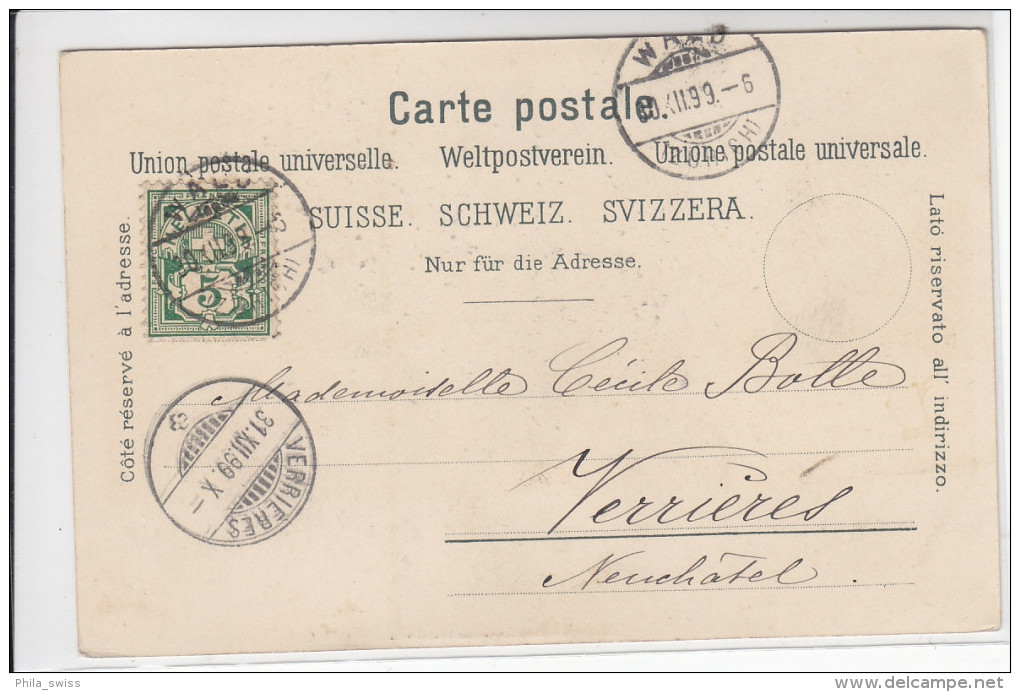 WALD
30.XII.99.–6
(ZÜRICH)
Carte postale
Union postale universelle. Weltpostverein. Unione postale universale.
SUISSE. SCHWEIZ. SVIZZERA.
Nur für die Adresse.
Côté réservé à l'adresse.
Lato riservato all' indirizzo.
WALD
HELVETIA
5
Mademoiselle Cécile Bolle
Verrières
Neuchâtel.
31.XII.99 X–
VERRIÈRES
Phila_swiss
delcampe.net